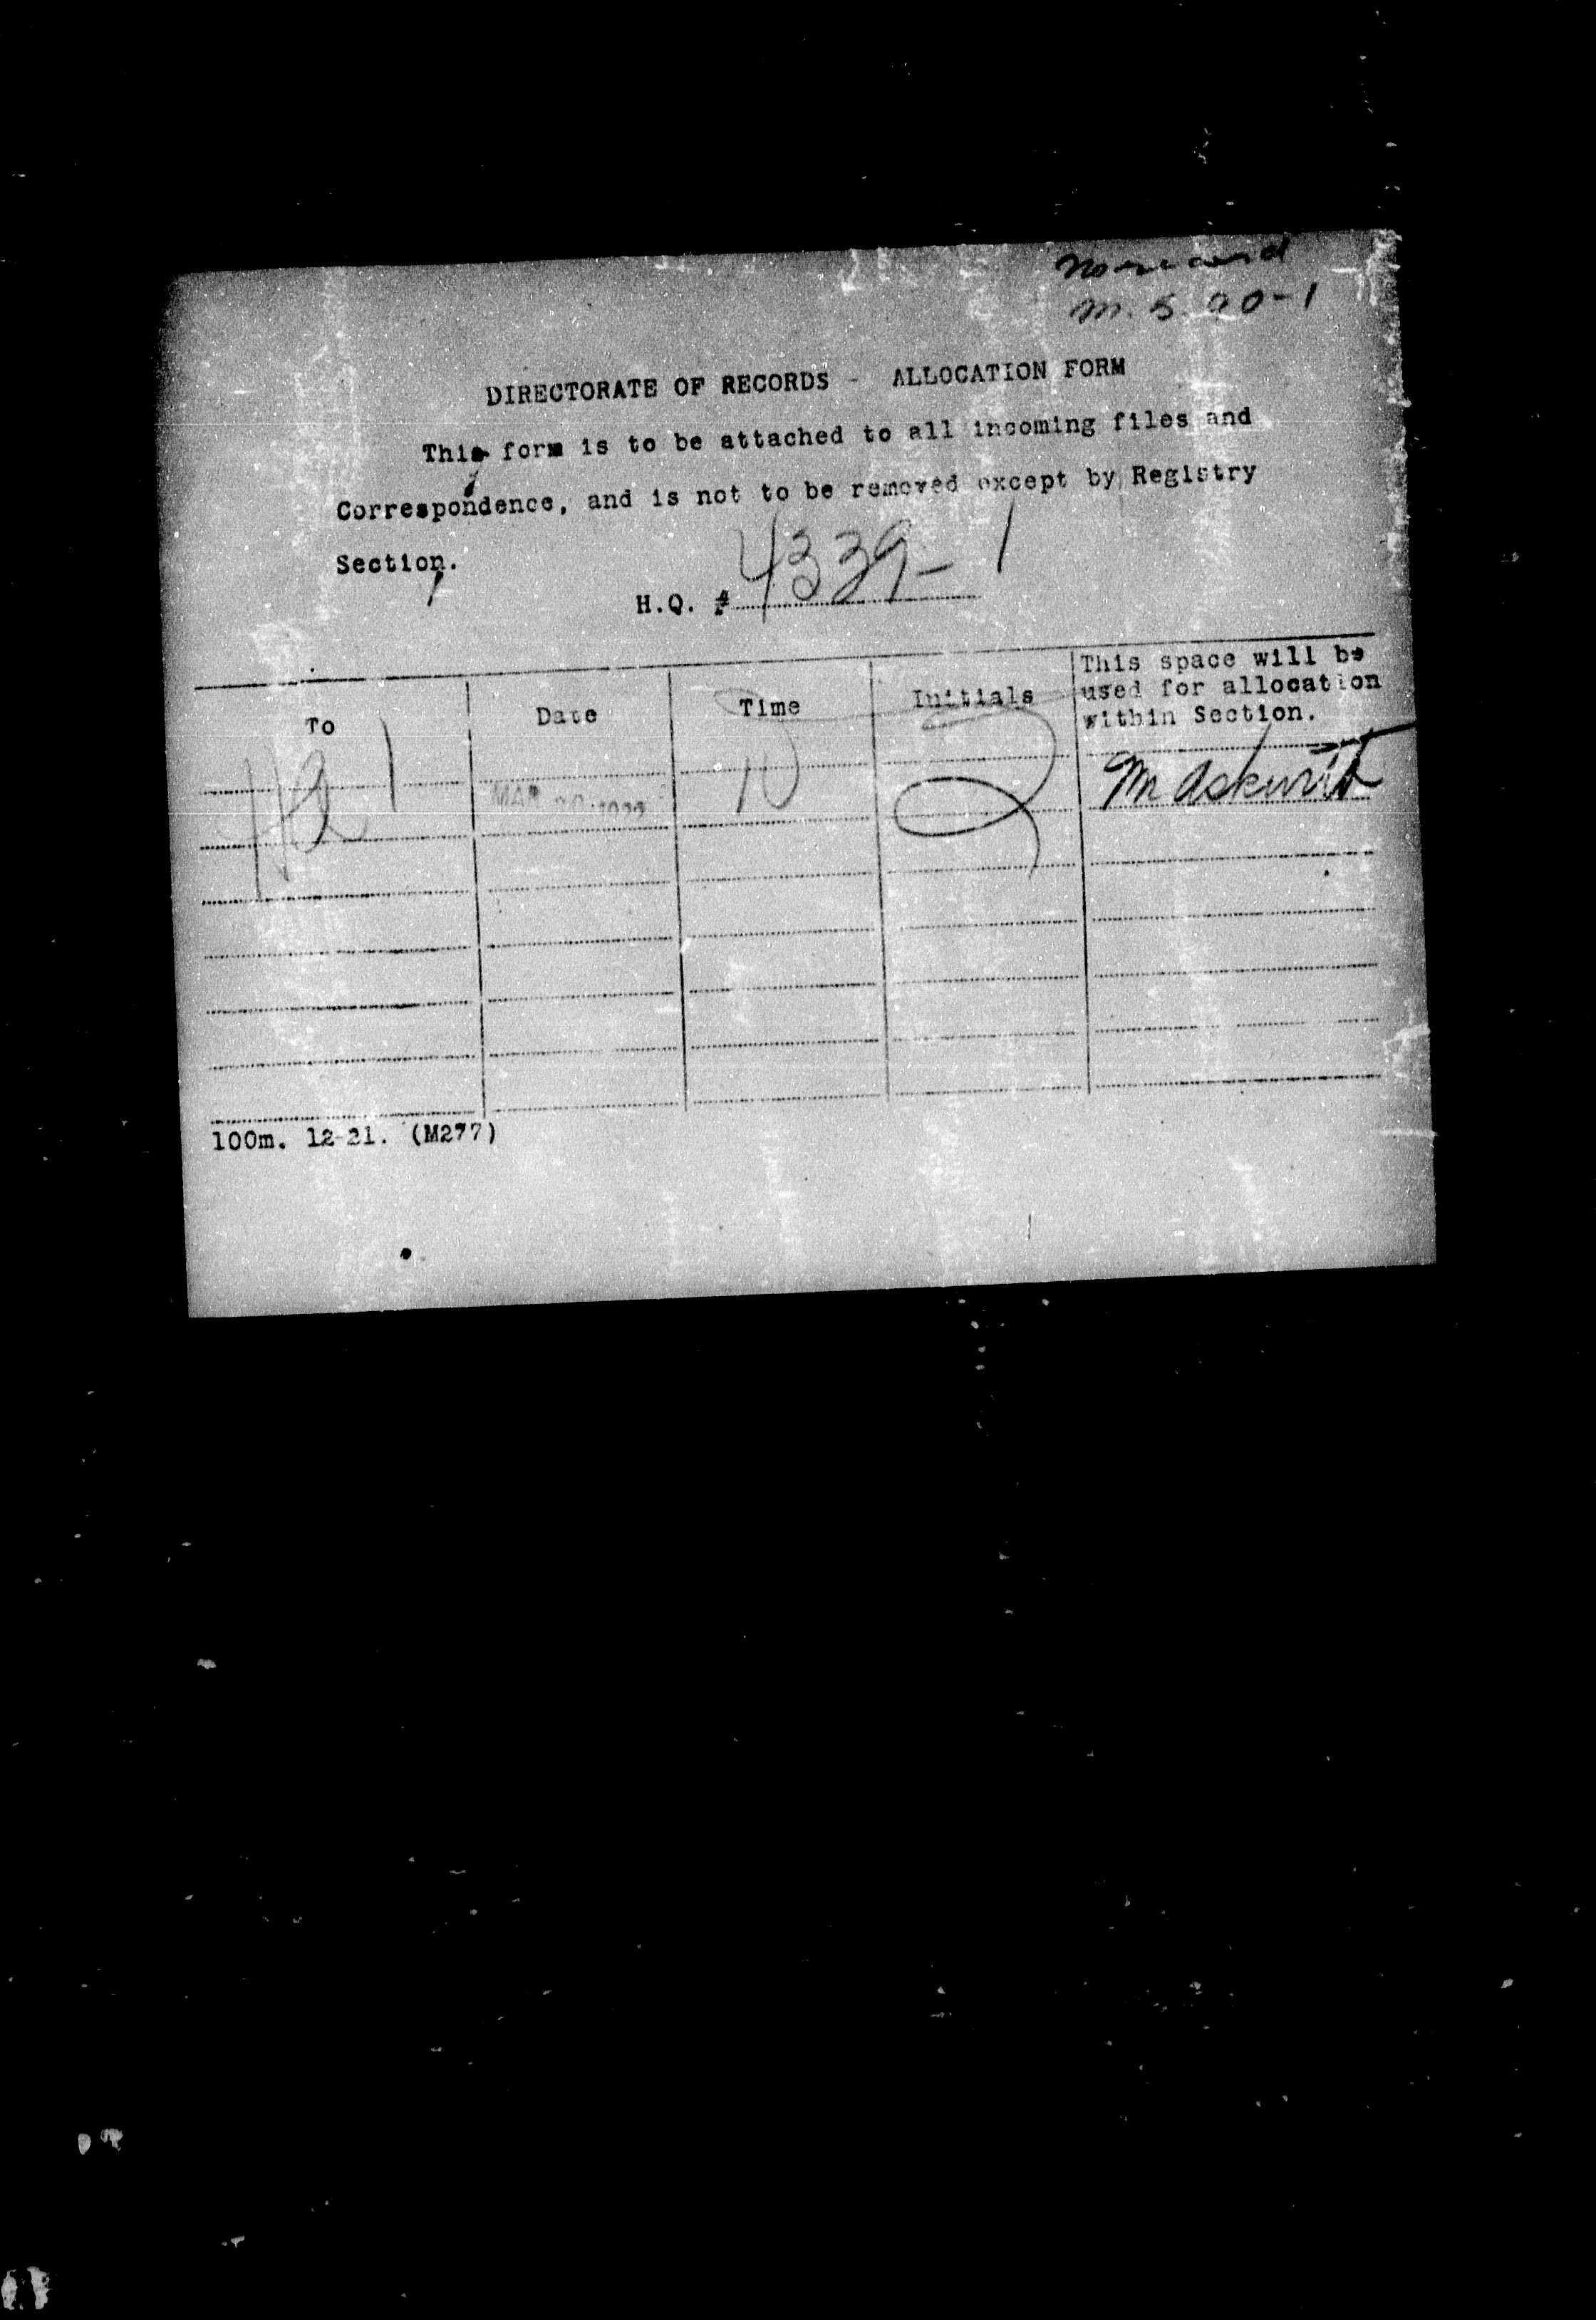 No record
M. S. 20-1
DIRECTORATE OF RECORDS - ALLOCATION FORM
This form is to be attached to all incoming files and
Correspondence, and is not to be removed except by Registry
Section.
H.Q. # 4339-1
To
Date
Time
Initials
This space will be
used for allocation
within Section.
MAR
10
Mr Askwith
100m. 12-21. (M277)